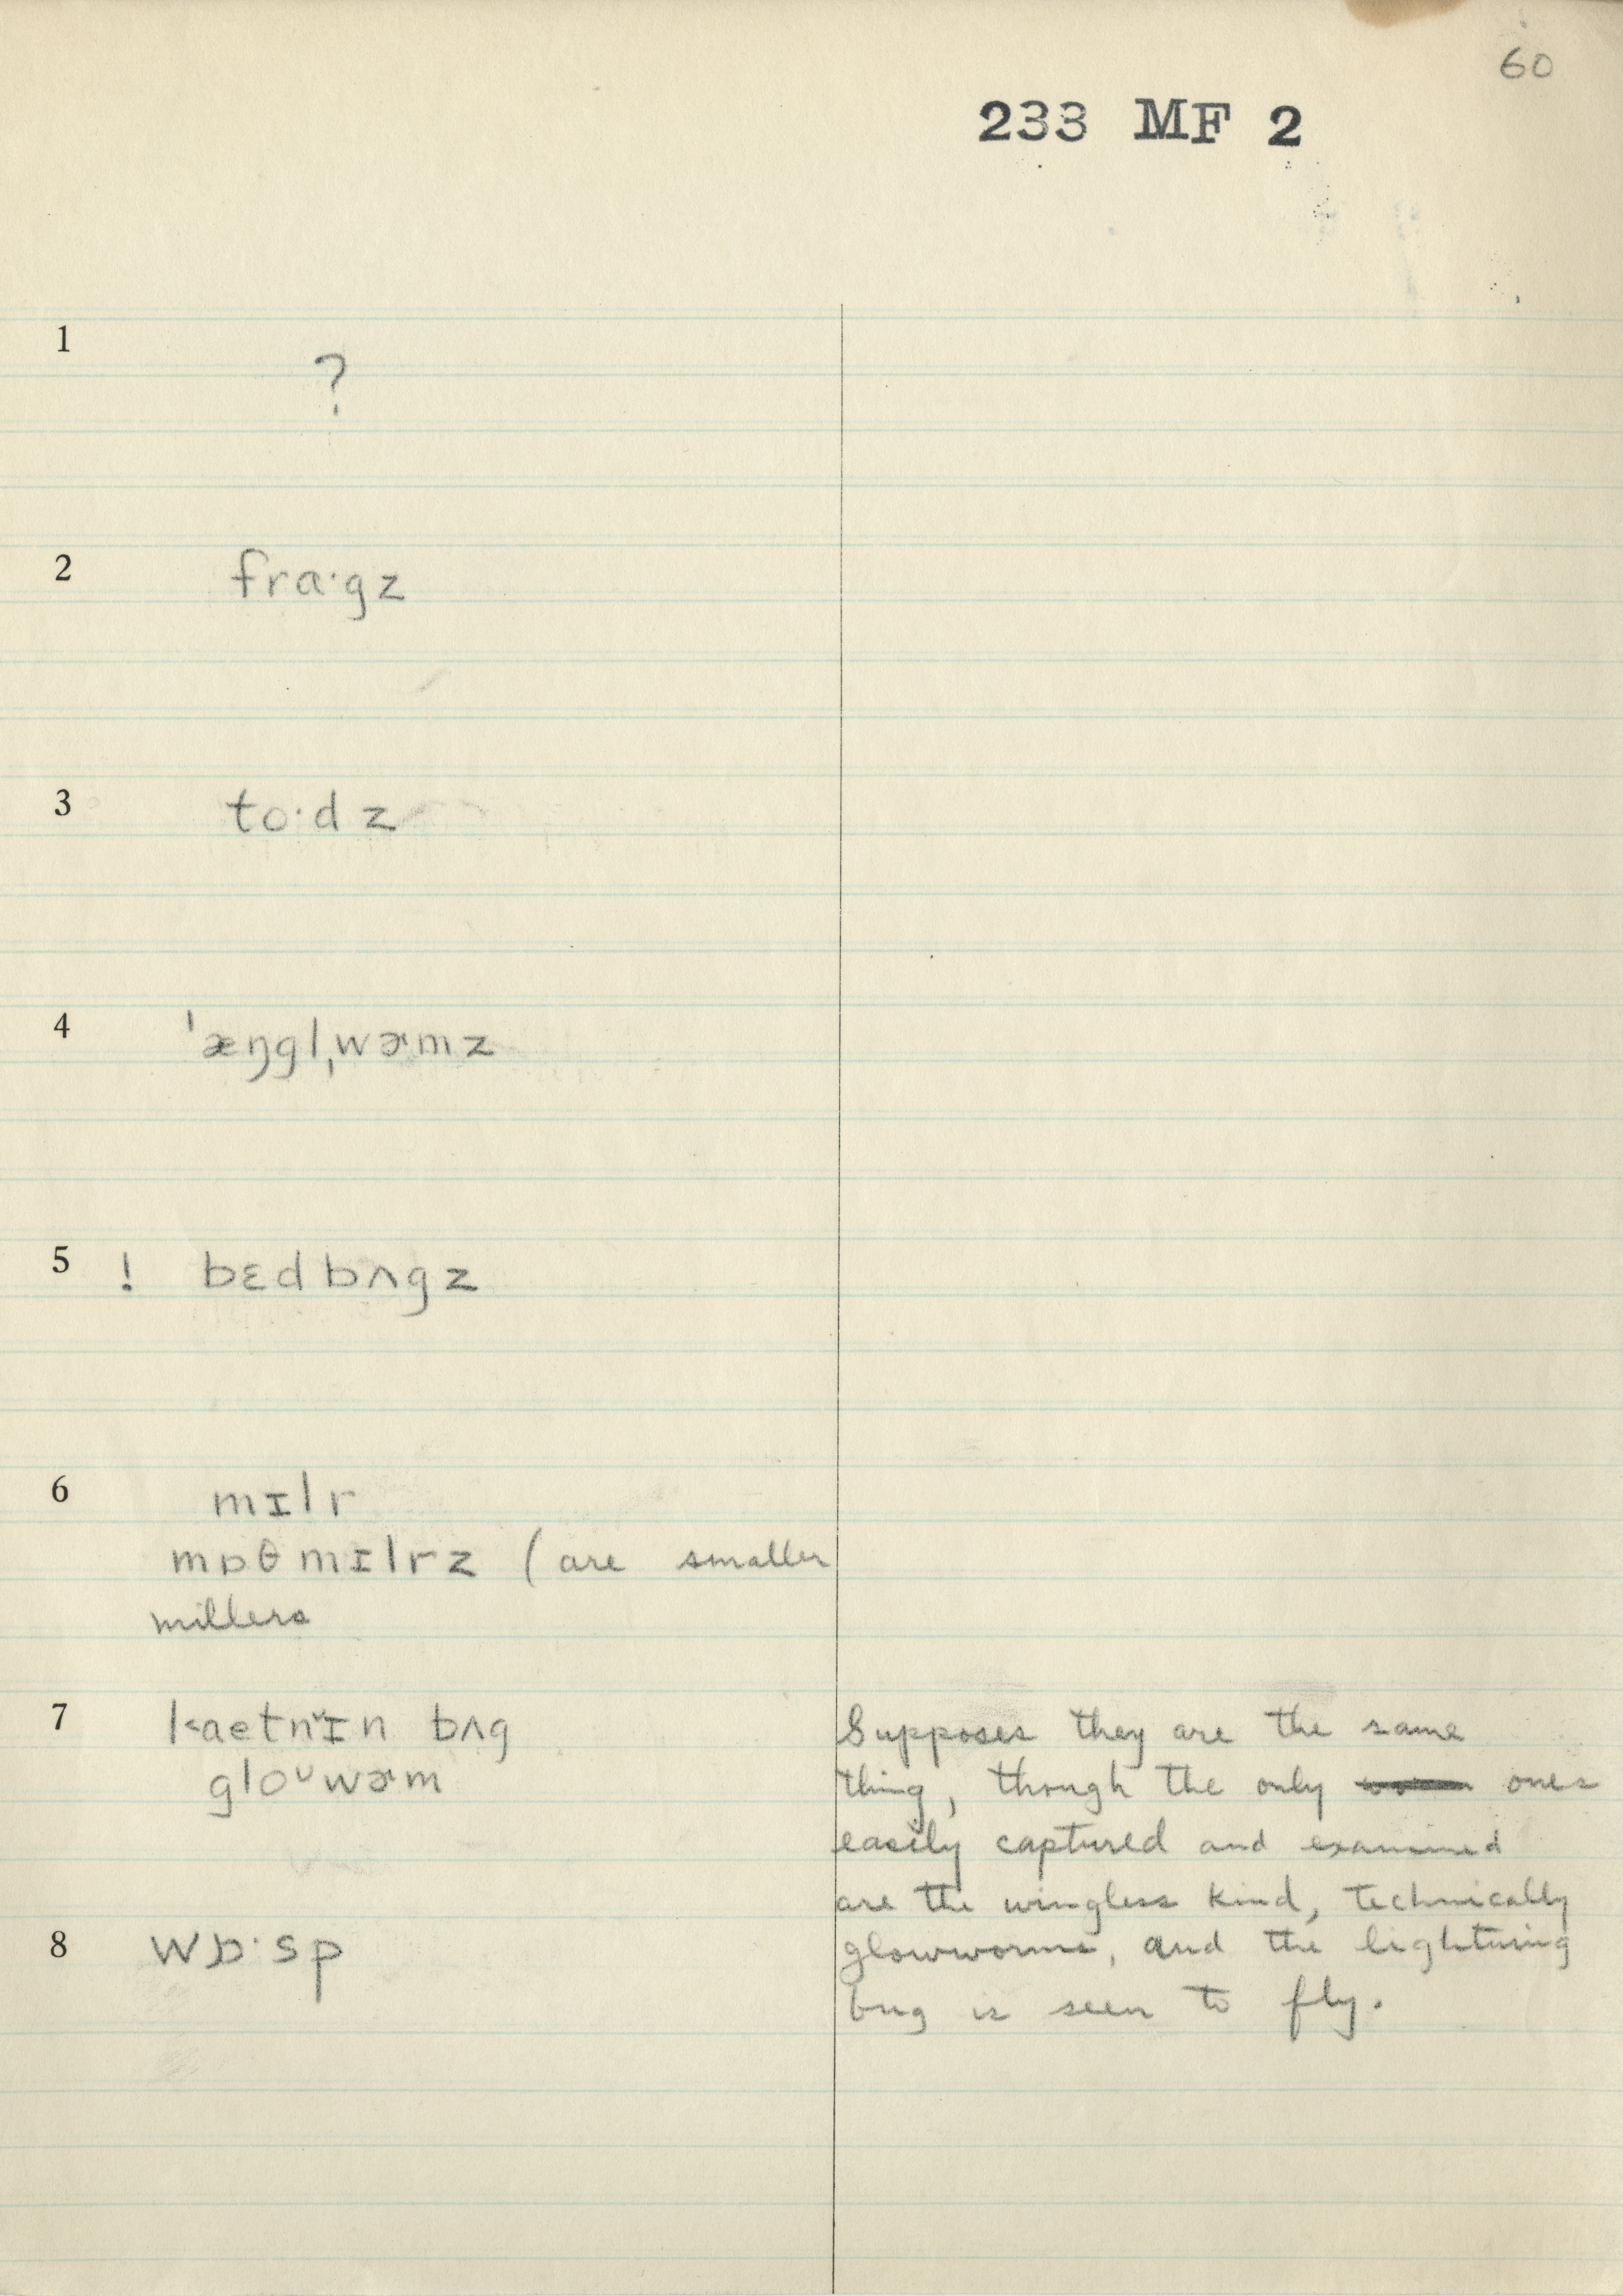 60
233 MF 2
1
?
2 fra·gz
3 to·dz
4 ˈæŋglˌwɚmz
5 ! bɛdbʌgz
6 mɪlr
mɒθmɪlrz (are smaller
millers
7 laetnɪn bʌg
gloᴜwɚm
Supposes they are the same
thing, though the only ones
easily captured and examined
are the wingless kind, technically
glowworms, and the lightning
bug is seen to fly.
8 wɒ·sp